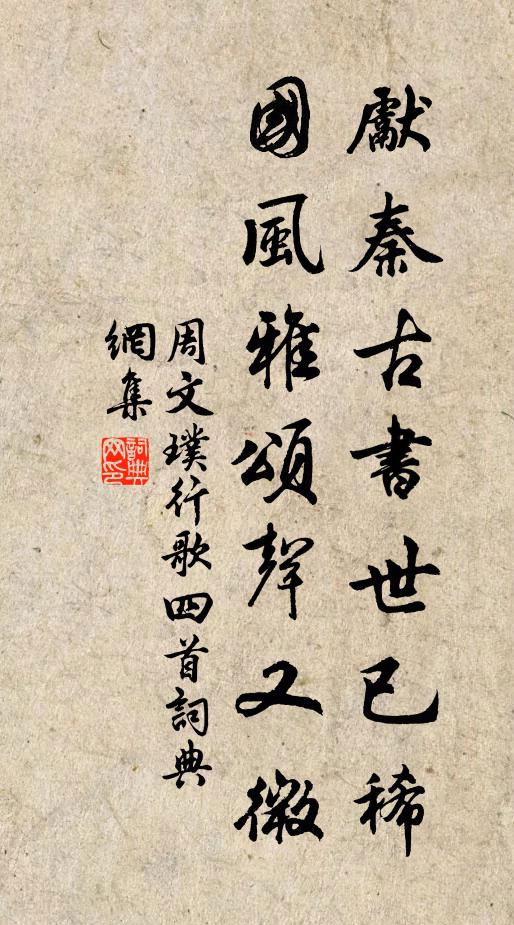 獻秦古書世已稀
國風雅頌聲又微
周文璞行歌四首詞典
網集
詞典網印